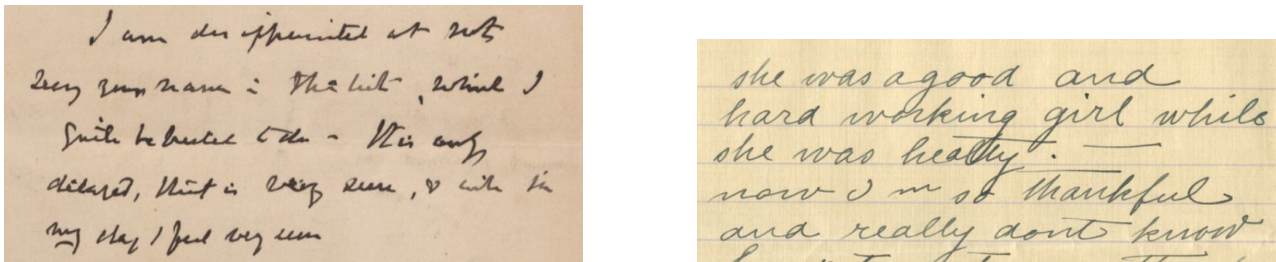 I am disappointed at not
seeing your name in the list, which I
quite to do - It is only
delayed, that is very sure, & with in
my day I feel very sure
she was a good and
hard working girl while
she was healty. —
now I m so thankful
and really dont know